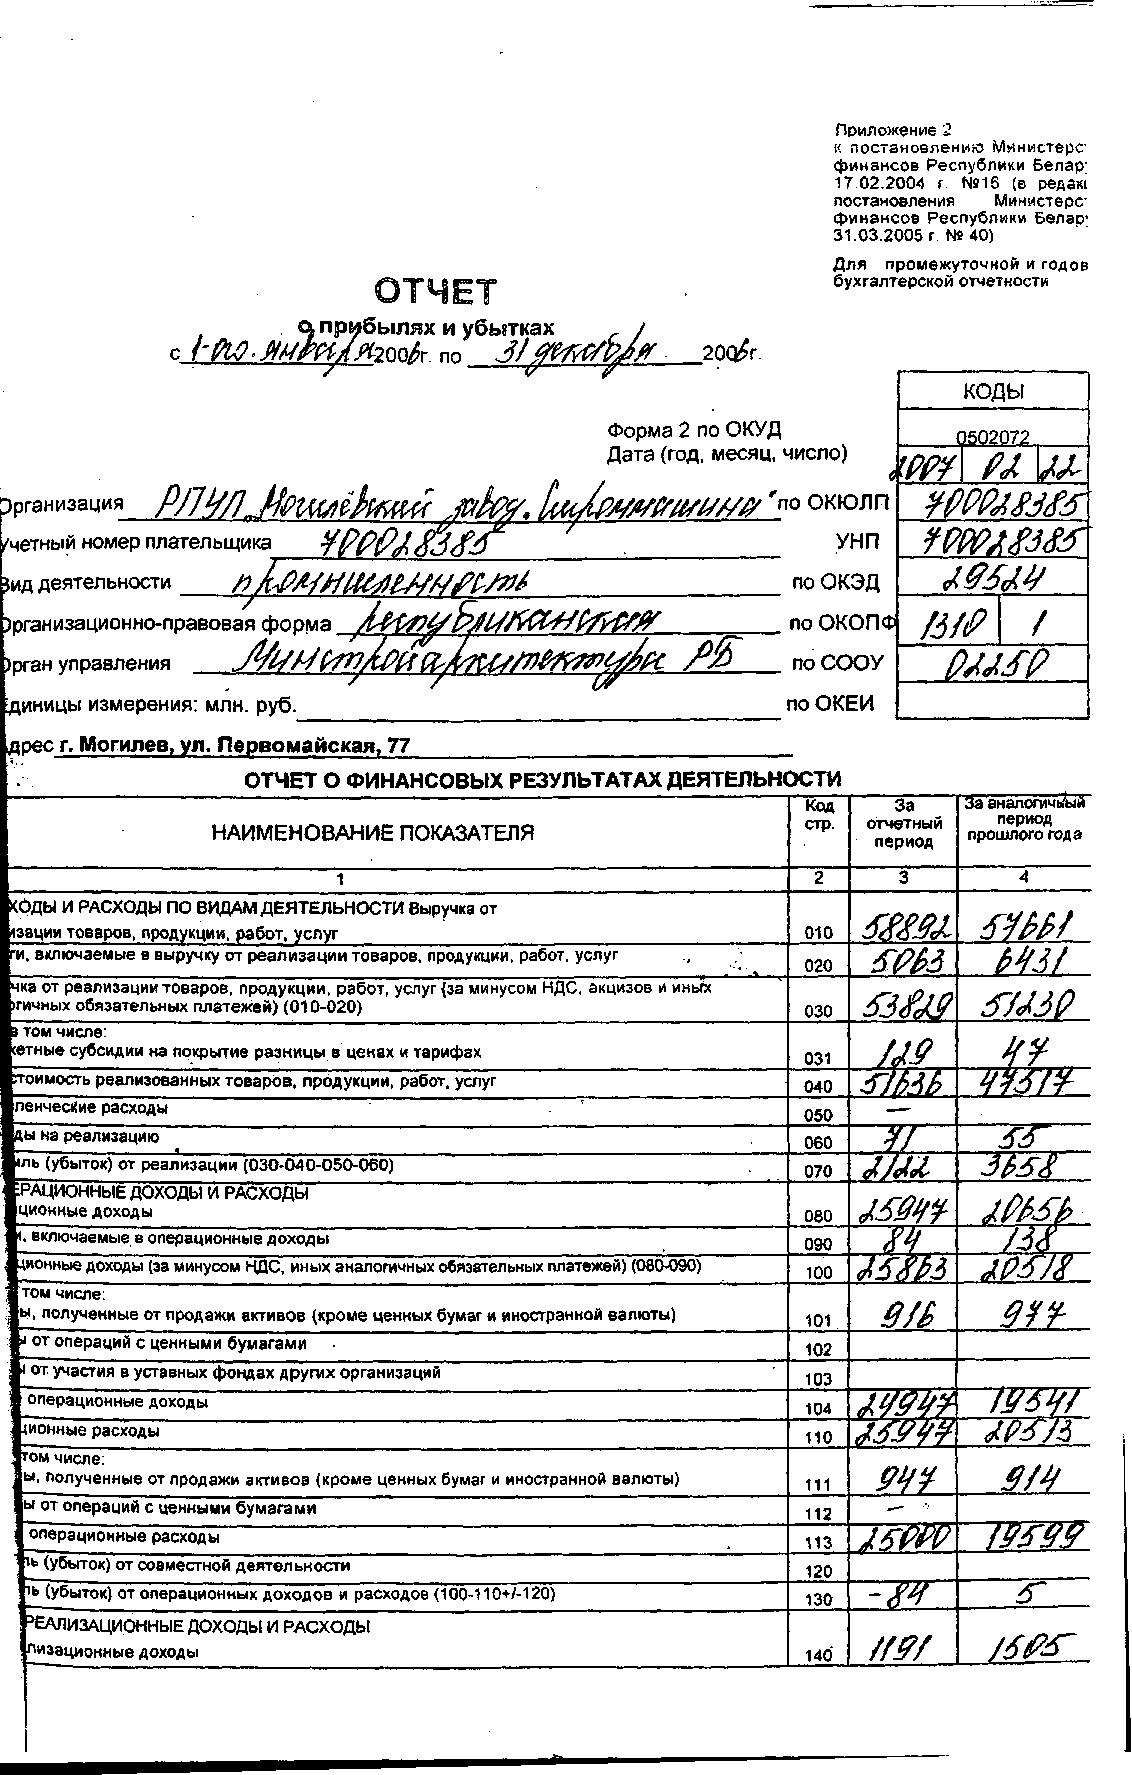 Приложение 2
к постановлению Министерс
финансов Республики Белар
17.02.2004 г. №16 (в редак
постановления Министерс
финансов Республики Белар
31.03.2005 г. № 40)
Для промежуточной и годов
бухгалтерской отчетности
ОТЧЕТ
о прибылях и убытках
с 1-го января 2006г. по 31 декабря 2006г.
КОДЫ
Форма 2 по ОКУД 0502072
Дата (год, месяц, число) 2007 02 22
Организация РПУП "Могилёвский завод "Строммашина" по ОКЮЛП 700028385
учетный номер плательщика 700028385 УНП 700028385
Вид деятельности промышленность по ОКЭД 29524
Организационно-правовая форма республиканская по ОКОПФ 1310 1
Орган управления Минстройархитектуры РБ по СООУ 02250
Единицы измерения: млн. руб. по ОКЕИ
Адрес г. Могилев, ул. Первомайская, 77
ОТЧЕТ О ФИНАНСОВЫХ РЕЗУЛЬТАТАХ ДЕЯТЕЛЬНОСТИ
НАИМЕНОВАНИЕ ПОКАЗАТЕЛЯ Код стр. За отчетный период За аналогичный период прошлого года
1 2 3 4
ХОДЫ И РАСХОДЫ ПО ВИДАМ ДЕЯТЕЛЬНОСТИ Выручка от
изации товаров, продукции, работ, услуг 010 58892 57661
ги, включаемые в выручку от реализации товаров, продукции, работ, услуг 020 5063 6431
чка от реализации товаров, продукции, работ, услуг (за минусом НДС, акцизов и иных
огичных обязательных платежей) (010-020) 030 53829 51230
в том числе:
жетные субсидии на покрытие разницы в ценах и тарифах 031 129 47
стоимость реализованных товаров, продукции, работ, услуг 040 51636 47517
ленческие расходы 050 —
ды на реализацию 060 71 55
ыль (убыток) от реализации (030-040-050-060) 070 2122 3658
ЕРАЦИОННЫЕ ДОХОДЫ И РАСХОДЫ
ционные доходы 080 25947 20656
и, включаемые в операционные доходы 090 84 138
ционные доходы (за минусом НДС, иных аналогичных обязательных платежей) (080-090) 100 25863 20518
том числе:
ы, полученные от продажи активов (кроме ценных бумаг и иностранной валюты) 101 916 977
ы от операций с ценными бумагами 102
ы от участия в уставных фондах других организаций 103
операционные доходы 104 24947 19541
ционные расходы 110 25947 20513
том числе:
ы, полученные от продажи активов (кроме ценных бумаг и иностранной валюты) 111 947 914
ы от операций с ценными бумагами 112 —
операционные расходы 113 25000 19599
ль (убыток) от совместной деятельности 120
ль (убыток) от операционных доходов и расходов (100-110+/-120) 130 -84 5
РЕАЛИЗАЦИОННЫЕ ДОХОДЫ И РАСХОДЫ
лизационные доходы 140 1191 1505